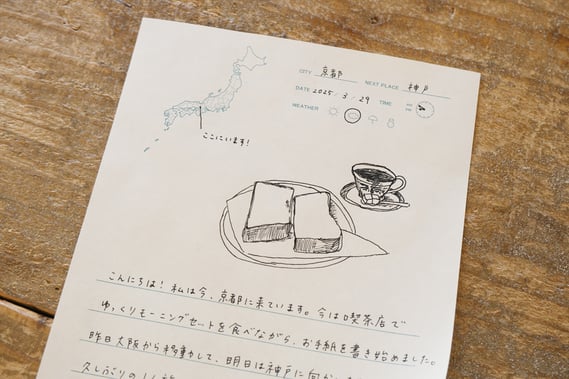 CITY 京都 NEXT PLACE 神戸
DATE 2025/3/29 TIME
WEATHER
ここにいます!
こんにちは!私は今、京都に来ています。今は喫茶店で
ゆっくりモーニングセットを食べながら、お手紙を書き始めました。
昨日大阪から移動して、明日は神戸に向か
久しぶりの